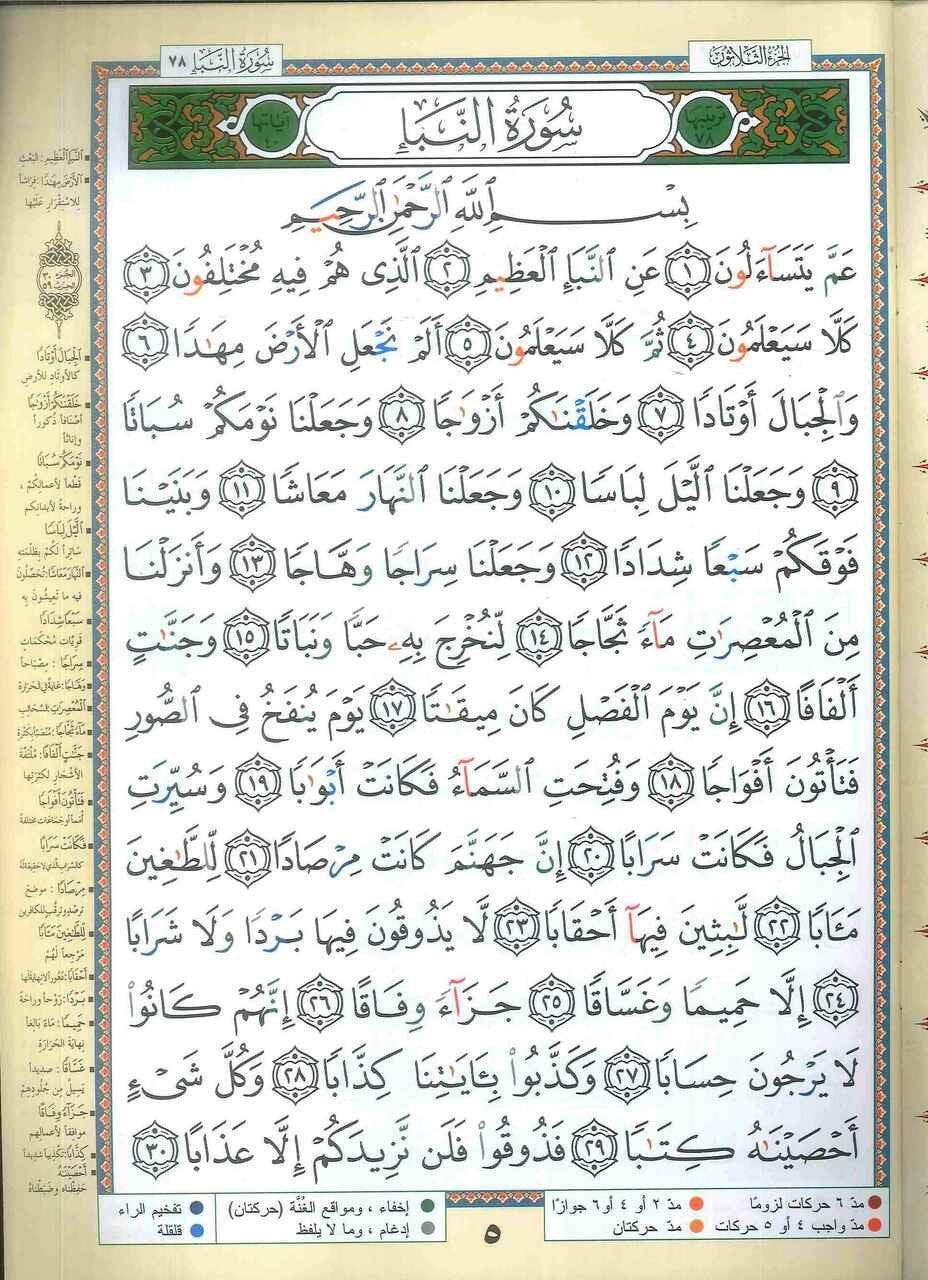 الجزء الثلاثون
سُورَةُ النَّبَإِ ٧٨
ترتيبها ٧٨
سُورَةُ النَّبَإِ
آياتها ٤٠
بِسْمِ ٱللَّهِ ٱلرَّحْمَٰنِ ٱلرَّحِيمِ
عَمَّ يَتَسَآءَلُونَ ١ عَنِ ٱلنَّبَإِ ٱلْعَظِيمِ ٢ ٱلَّذِى هُمْ فِيهِ مُخْتَلِفُونَ ٣
كَلَّا سَيَعْلَمُونَ ٤ ثُمَّ كَلَّا سَيَعْلَمُونَ ٥ أَلَمْ نَجْعَلِ ٱلْأَرْضَ مِهَٰدًا ٦
وَٱلْجِبَالَ أَوْتَادًا ٧ وَخَلَقْنَٰكُمْ أَزْوَٰجًا ٨ وَجَعَلْنَا نَوْمَكُمْ سُبَاتًا
٩ وَجَعَلْنَا ٱلَّيْلَ لِبَاسًا ١٠ وَجَعَلْنَا ٱلنَّهَارَ مَعَاشًا ١١ وَبَنَيْنَا
فَوْقَكُمْ سَبْعًا شِدَادًا ١٢ وَجَعَلْنَا سِرَاجًا وَهَّاجًا ١٣ وَأَنزَلْنَا
مِنَ ٱلْمُعْصِرَٰتِ مَآءً ثَجَّاجًا ١٤ لِّنُخْرِجَ بِهِۦ حَبًّا وَنَبَاتًا ١٥ وَجَنَّٰتٍ
أَلْفَافًا ١٦ إِنَّ يَوْمَ ٱلْفَصْلِ كَانَ مِيقَٰتًا ١٧ يَوْمَ يُنفَخُ فِى ٱلصُّورِ
فَتَأْتُونَ أَفْوَاجًا ١٨ وَفُتِحَتِ ٱلسَّمَآءُ فَكَانَتْ أَبْوَٰبًا ١٩ وَسُيِّرَتِ
ٱلْجِبَالُ فَكَانَتْ سَرَابًا ٢٠ إِنَّ جَهَنَّمَ كَانَتْ مِرْصَادًا ٢١ لِّلطَّٰغِينَ
مَـَٔابًا ٢٢ لَّٰبِثِينَ فِيهَآ أَحْقَابًا ٢٣ لَّا يَذُوقُونَ فِيهَا بَرْدًا وَلَا شَرَابًا
٢٤ إِلَّا حَمِيمًا وَغَسَّاقًا ٢٥ جَزَآءً وِفَاقًا ٢٦ إِنَّهُمْ كَانُوا۟
لَا يَرْجُونَ حِسَابًا ٢٧ وَكَذَّبُوا۟ بِـَٔايَٰتِنَا كِذَّابًا ٢٨ وَكُلَّ شَىْءٍ
أَحْصَيْنَٰهُ كِتَٰبًا ٢٩ فَذُوقُوا۟ فَلَن نَّزِيدَكُمْ إِلَّا عَذَابًا ٣٠
النَّبَإِ العَظِيمِ: البَعْث
الأَرْضَ مِهَٰدًا: فِرَاشًا
لِلاسْتِقْرَارِ عَلَيْهَا
الجُزْءُ ٣٠
الحِزْبُ ٥٩
الجِبَالَ أَوْتَادًا
كالأوتَادِ للأرضِ
خَلَقْنَٰكُمْ أَزْوَٰجًا
أَصْنَافاً ذُكُوراً
وإناثاً
نَوْمَكُمْ سُبَاتًا
قَطْعاً لأعمالِكُمْ،
وراحةً لأبدانِكم
اللَّيْلَ لِبَاسًا
سَاتِراً لَكُمْ بظلمَتِهِ
النَّهَارَ مَعَاشًا: تُحَصِّلُونَ
فيه ما تَعِيشُونَ بِهِ
سَبْعًا شِدَادًا
قَوِيَّاتٍ مُحْكَمَاتٍ
سِرَاجًا: مِصْبَاحاً
وَهَّاجًا: غايةً في الحَرَارة
المُعْصِرَٰتِ: السَّحَائِبِ
مَآءً ثَجَّاجًا: مُنْصَبًّا بكَثْرَة
جَنَّٰتٍ أَلْفَافًا: مُلْتَفَّةَ
الأشْجارِ لكَثْرَتِها
فَتَأْتُونَ أَفْوَاجًا
أُمَماً أو جَمَاعَاتٍ مختلفة
فَكَانَتْ سَرَابًا
كالسَّرابِ الَّذي لا حقيقةَ لهُ
مِرْصَادًا: موضعَ
تَرَصُّدٍ وترقُّبٍ للكافرين
لِلطَّٰغِينَ مَـَٔابًا
مَرْجِعاً لَهُمْ
أَحْقَابًا: دُهُوراً لا نهايةَ لَها
بَرْدًا: رَوْحاً وراحةً
حَمِيمًا: مَاءً بَالِغاً
نِهايةَ الحَرَارَةِ
غَسَّاقًا: صَدِيداً
يَسِيلُ مِن جُلودِهِمْ
جَزَآءً وِفَاقًا
مُوافِقاً لأعمالِهم
كِذَّابًا: تكْذِيباً شديداً
أَحْصَيْنَٰهُ
حَفِظْنَاه وضَبَطْنَاهُ
مدّ ٦ حركات لزومًا
مدّ ٢ أو ٤ أو ٦ جوازًا
إخفاء، ومواقع الغُنَّة (حركتان)
تفخيم الراء
مدّ واجب ٤ أو ٥ حركات
مدّ حركتان
إدغام، وما لا يلفظ
قلقلة
٥